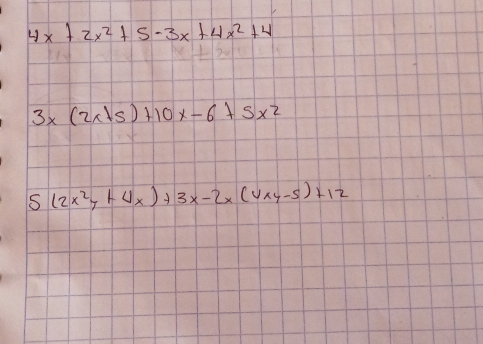 4x + 2x² + 5 - 3x + 4x² + 4
3x (2x+5) + 10x - 6 + 5x²
5 (2x²y + 4x) + 3x - 2x (4xy - 5) + 12